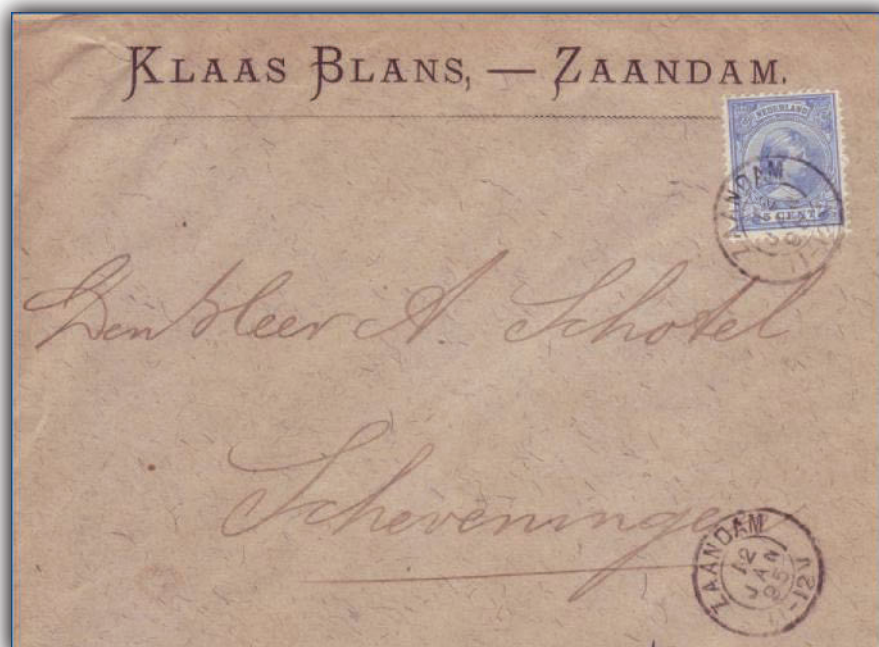 KLAAS BLANS, — ZAANDAM.
NEDERLAND
5 CENT
ZAANDAM
Den Heer A. Schotel
Scheveningen
ZAANDAM
12
JAN
95
11-12V